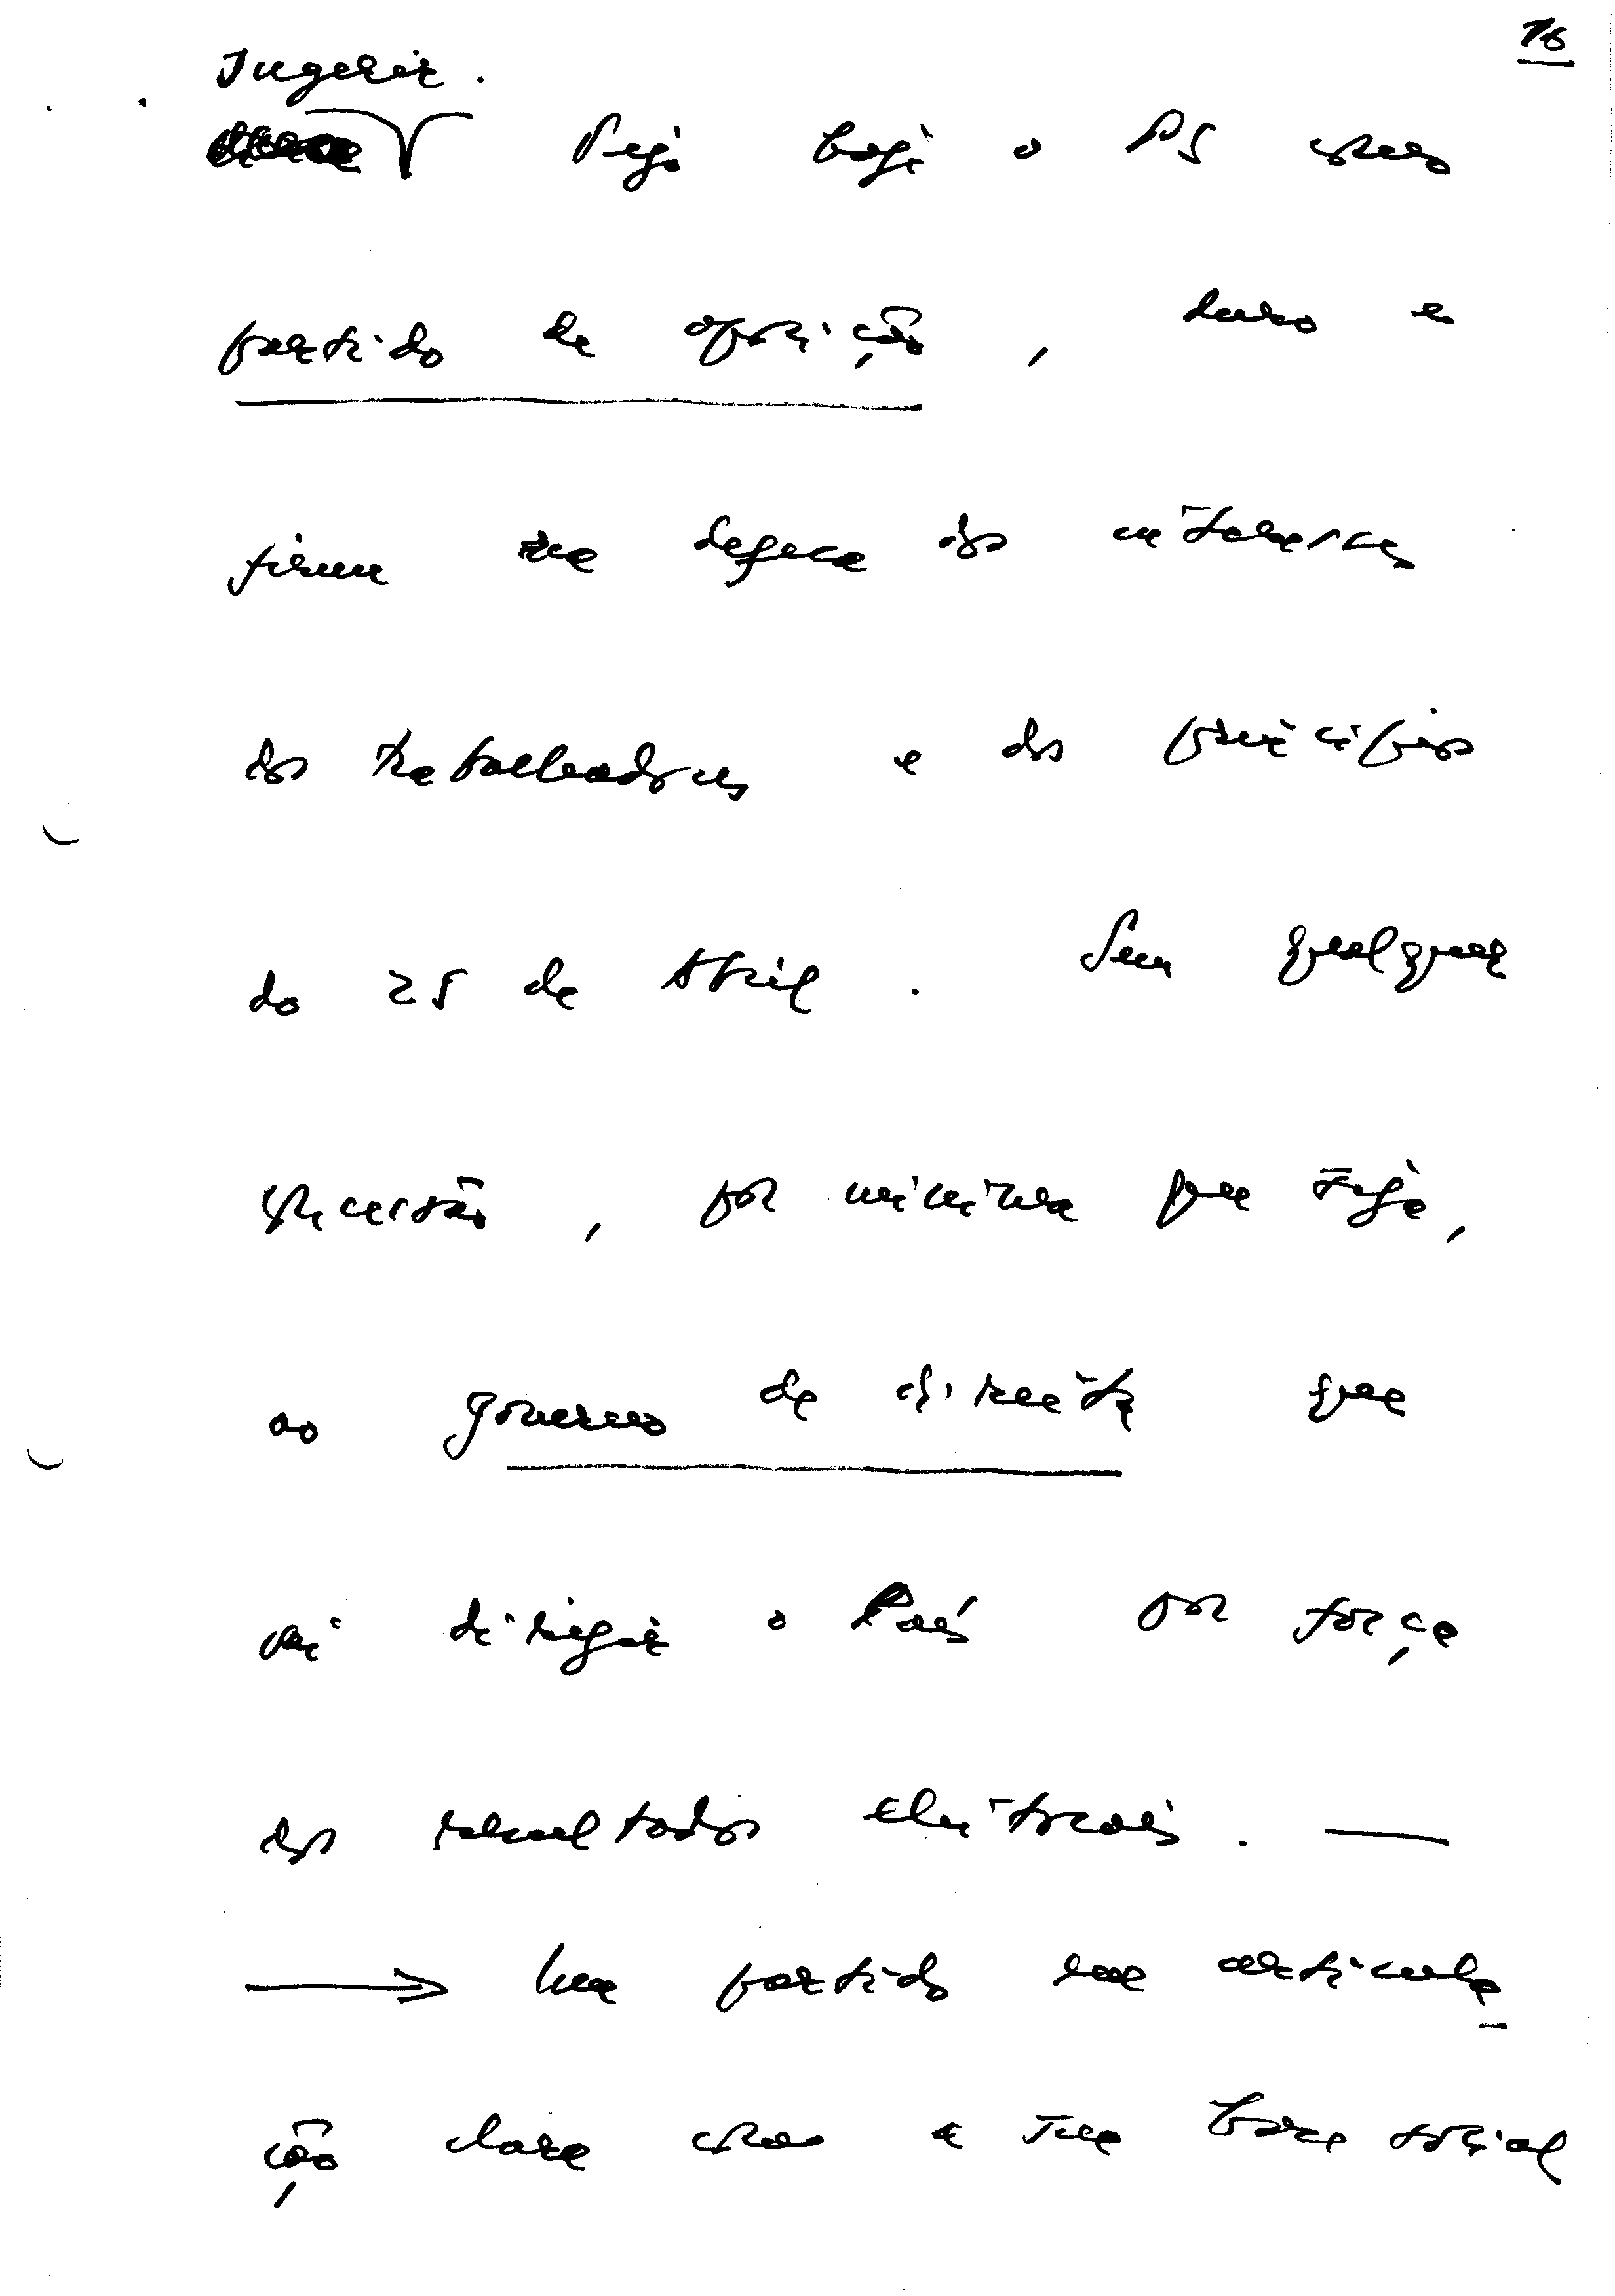 16
Sugerir.
Seja hoje o PS como
partido de oposição, duro e
firme na defesa dos interesses
dos trabalhadores e dos princípios
do 25 de Abril. Sem qualquer
concessão, por mínima que seja,
ao governo de direita que
vai dirigir o País por força
dos resultados eleitorais. —
→ Um partido em articula
ção clara com a sua base social